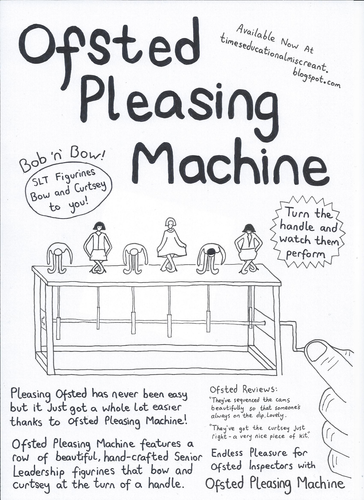 Ofsted
Pleasing
Machine
Available Now At
timeseducationalmiscreant.
blogspot.com
Bob 'n' Bow!
SLT Figurines
Bow and Curtsey
to you!
Turn the
handle and
watch them
perform
Pleasing Ofsted has never been easy
but it Just got a whole lot easier
thanks to Ofsted Pleasing Machine!
Ofsted Pleasing Machine features a
row of beautiful, hand-crafted Senior
Leadership figurines that bow and
curtsey at the turn of a handle.
Ofsted Reviews:
"They've sequenced the cams
beautifully so that someone's
always on the dip. Lovely.
"They've got the curtsey just
right - a very nice piece of kit."
Endless Pleasure for
Ofsted Inspectors with
Ofsted Pleasing Machine